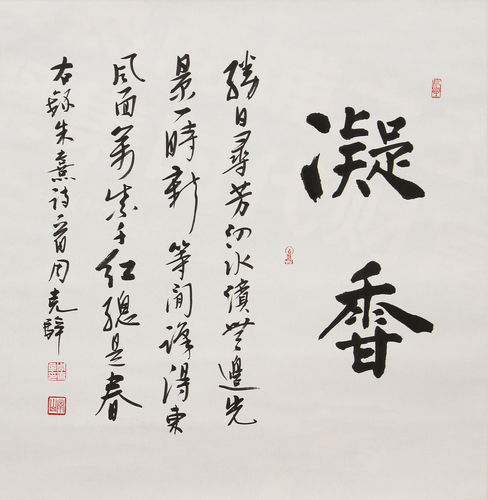 凝香
勝日尋芳泗水濱無邊光
景一時新等閒識得東
風面萬紫千紅總是春
右錄朱熹詩一首周克